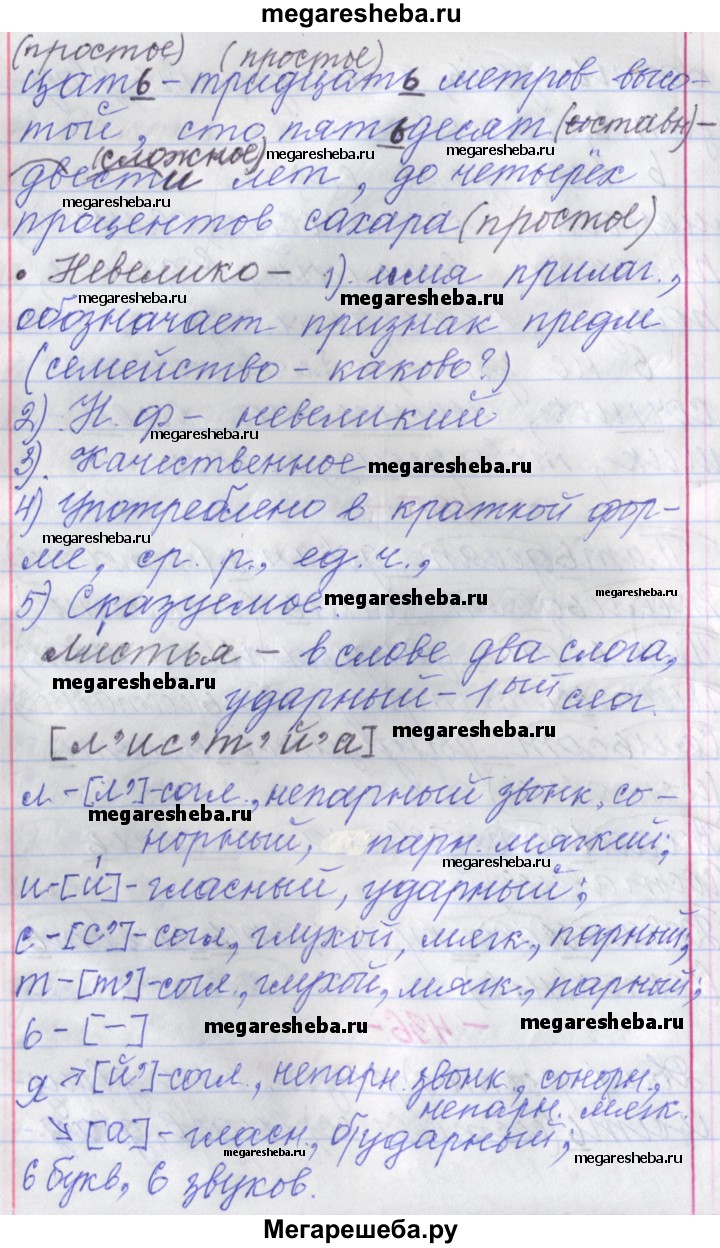 megaresheba.ru
(простое) (простое)
цать - тридцать метров высо-
той, сто пятьдесят (составн) -
(сложное) megaresheba.ru megaresheba.ru
двести лет, до четырёх
megaresheba.ru
процентов сахара (простое)
• Невелико - 1). имя прилаг.,
megaresheba.ru megaresheba.ru
обозначает признак предм
(семейство - каково?)
2). Н. ф - невеликий
megaresheba.ru
3). Качественное megaresheba.ru
4) Употреблено в краткой фор-
megaresheba.ru
ме, ср. р., ед. ч.,
5) Сказуемое. megaresheba.ru megaresheba.ru
листья - в слове два слога,
megaresheba.ru
ударный - 1ый слог.
[л'ис'т'й'а] megaresheba.ru
л - [л']-согл., непарный звонк, со-
megaresheba.ru
норный, парн. мягкий;
megaresheba.ru
и-[и́]-гласный, ударный;
с-[с']-согл., глухой, мягк., парный;
т-[т']-согл., глухой, мягк., парный;
ь - [-] megaresheba.ru megaresheba.ru
я ↗ [й']-согл., непарн. звонк., сонорн.,
непарн. мягк.
↘ [а] - гласн., б/ударный;
megaresheba.ru
6 букв, 6 звуков.
Мегарешеба.ру